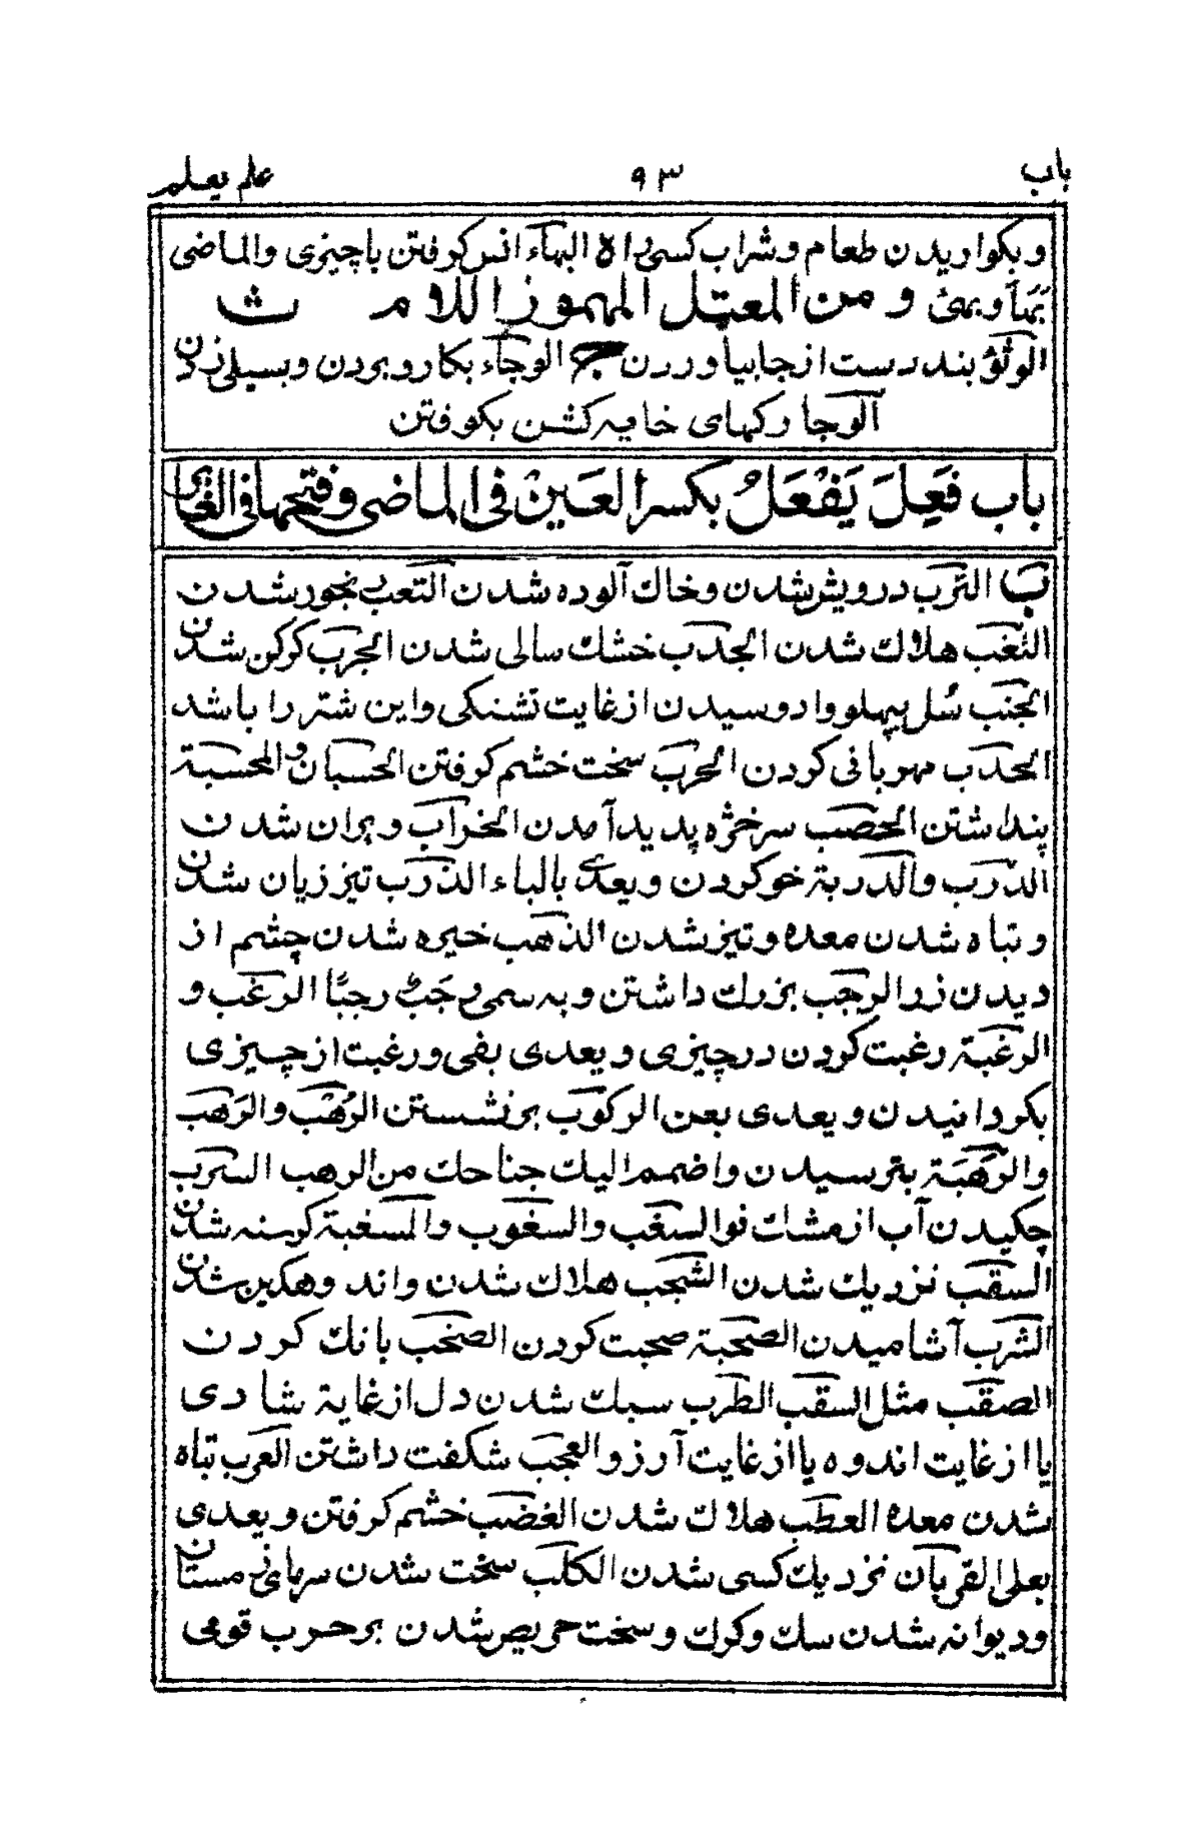 باب ٩٣ علم يعلم
و بكواريدن طعام و شراب كسى را ة البهاء انس كرفتن با چيزى والماضى
بَهَأ و بهئ و من المعتل المهموز اللام ث
الوثؤ بند دست از جا بياوردن ج الوجاء بكارد بردن و بسيلى زدن
الوجا ركهاى خايه كشن بكوفتن
باب فَعِلَ يَفْعَلُ بكسر العَينْ فى الماضى و فتحها فى الغابر
ب الترب درويش شدن و خاك آلوده شدن التعب رنجور شدن
التغب هلاك شدن الجدب خشك سالى شدن الجرب كركن شدن
الجنب شل بپهلو وا دوسيدن از غايت تشنكى و اين شتر را باشد
الحدب مهربانى كردن الحرب سخت خشم كرفتن الحسبان و المحسبة
پنداشتن الحصب سرخژه پديد آمدن الخراب ويران شدن
الدرب والدربة خو كردن و يعدى بالباء الذرب تيز زبان شدن
و تباه شدن معده و تيز شدن الذهب خيره شدن چشم از
ديدن زر الرجب بزرك داشتن و به سمى رجَبٌ رجبًا الرغب و
الرغبة رغبت كردن در چيزى و يعدى بفى و رغبت از چيزى
بكردانيدن و يعدى بعن الركوب برنشستن الرُهْب والرَهَب
والرَّهبَة بترسيدن واضمم اليك جناحك من الرهب السرب
چكيدن آب از مشك نو السغب والسغوب والمسغبة كرسنه شدن
السقب نزديك شدن الشجب هلاك شدن و اندوهكين شدن
الشرب آشاميدن الصحبة صحبت كردن الصخب بانك كردن
الصقب مثل السقب الطرب سبك شدن دل از غاية شادى
يا از غايت اندوه يا از غايت آرزو العجب شكفت داشتن العرب تباه
شدن معده العطب هلاك شدن الغضب خشم كرفتن و يعدى
بعلى القربان نزديك كسى شدن الكلب سخت شدن سرماى زمستان
و ديوانه شدن سك و كرك و سخت حريص شدن بر حرب قومى